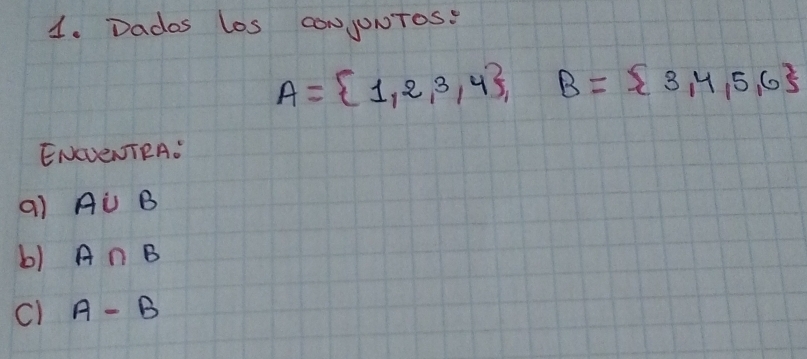 1. Dados los conjuntos:
A = {1,2,3,4}, B = {3,4,5,6}
ENCUENTRA:
a) A ∪ B
b) A ∩ B
c) A - B